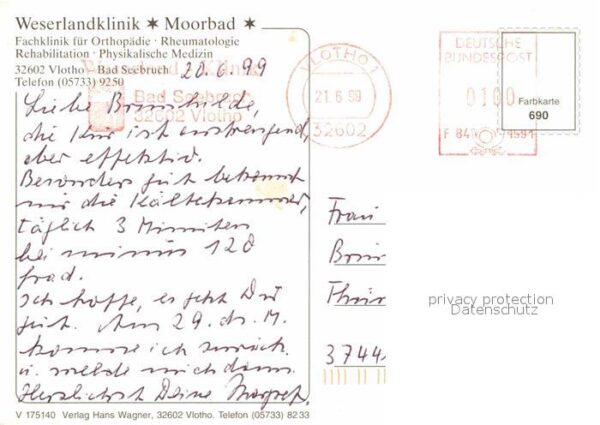 Weserlandklinik ✶ Moorbad ✶
Fachklinik für Orthopädie · Rheumatologie
Rehabilitation · Physikalische Medizin
32602 Vlotho - Bad Seebruch
Telefon (05733) 9250
20.6.99
Bad Seebruch
32602 Vlotho
VLOTHO 1
21.6.99
32602
DEUTSCHE
BUNDESPOST
0100
F 84
Farbkarte
690
Liebe Brunhilde,
die Kur ist anstrengend,
aber effektiv.
Besonders gut bekommt
mir die Kältekammer,
täglich 3 Minuten
bei minus 120
Grad.
Ich hoffe, es geht Dir
gut. Am 29. ds. M.
komme ich zurück
u. melde mich dann.
Herzlichst Deine Margret
Frau
Brun
Thür
3744
privacy protection
Datenschutz
V 175140 Verlag Hans Wagner, 32602 Vlotho. Telefon (05733) 8233